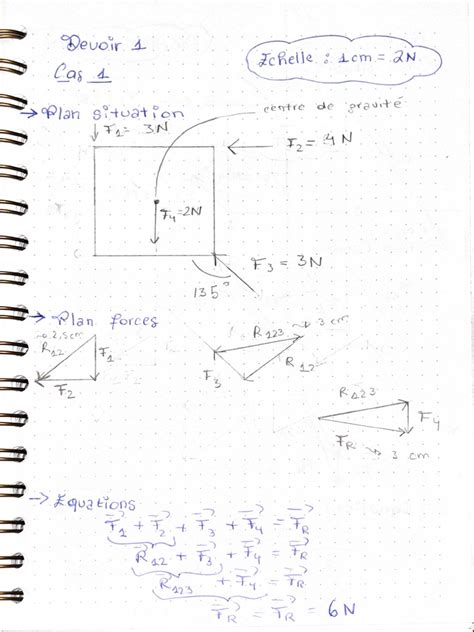 Devoir 1
Echelle : 1cm = 2N
Cas 1
→ Plan situation
centre de gravité
F1 = 3N
F2 = 4N
F4 = 2N
F3 = 3N
135°
→ Plan forces
2,5cm
R12
F1
F2
R123 → 3 cm
F3
R12
R123
F4
FR → 3 cm
→ Equations
F1 + F2 + F3 + F4 = FR
R12 + F3 + F4 = FR
R123 + F4 = FR
FR = FR = 6N